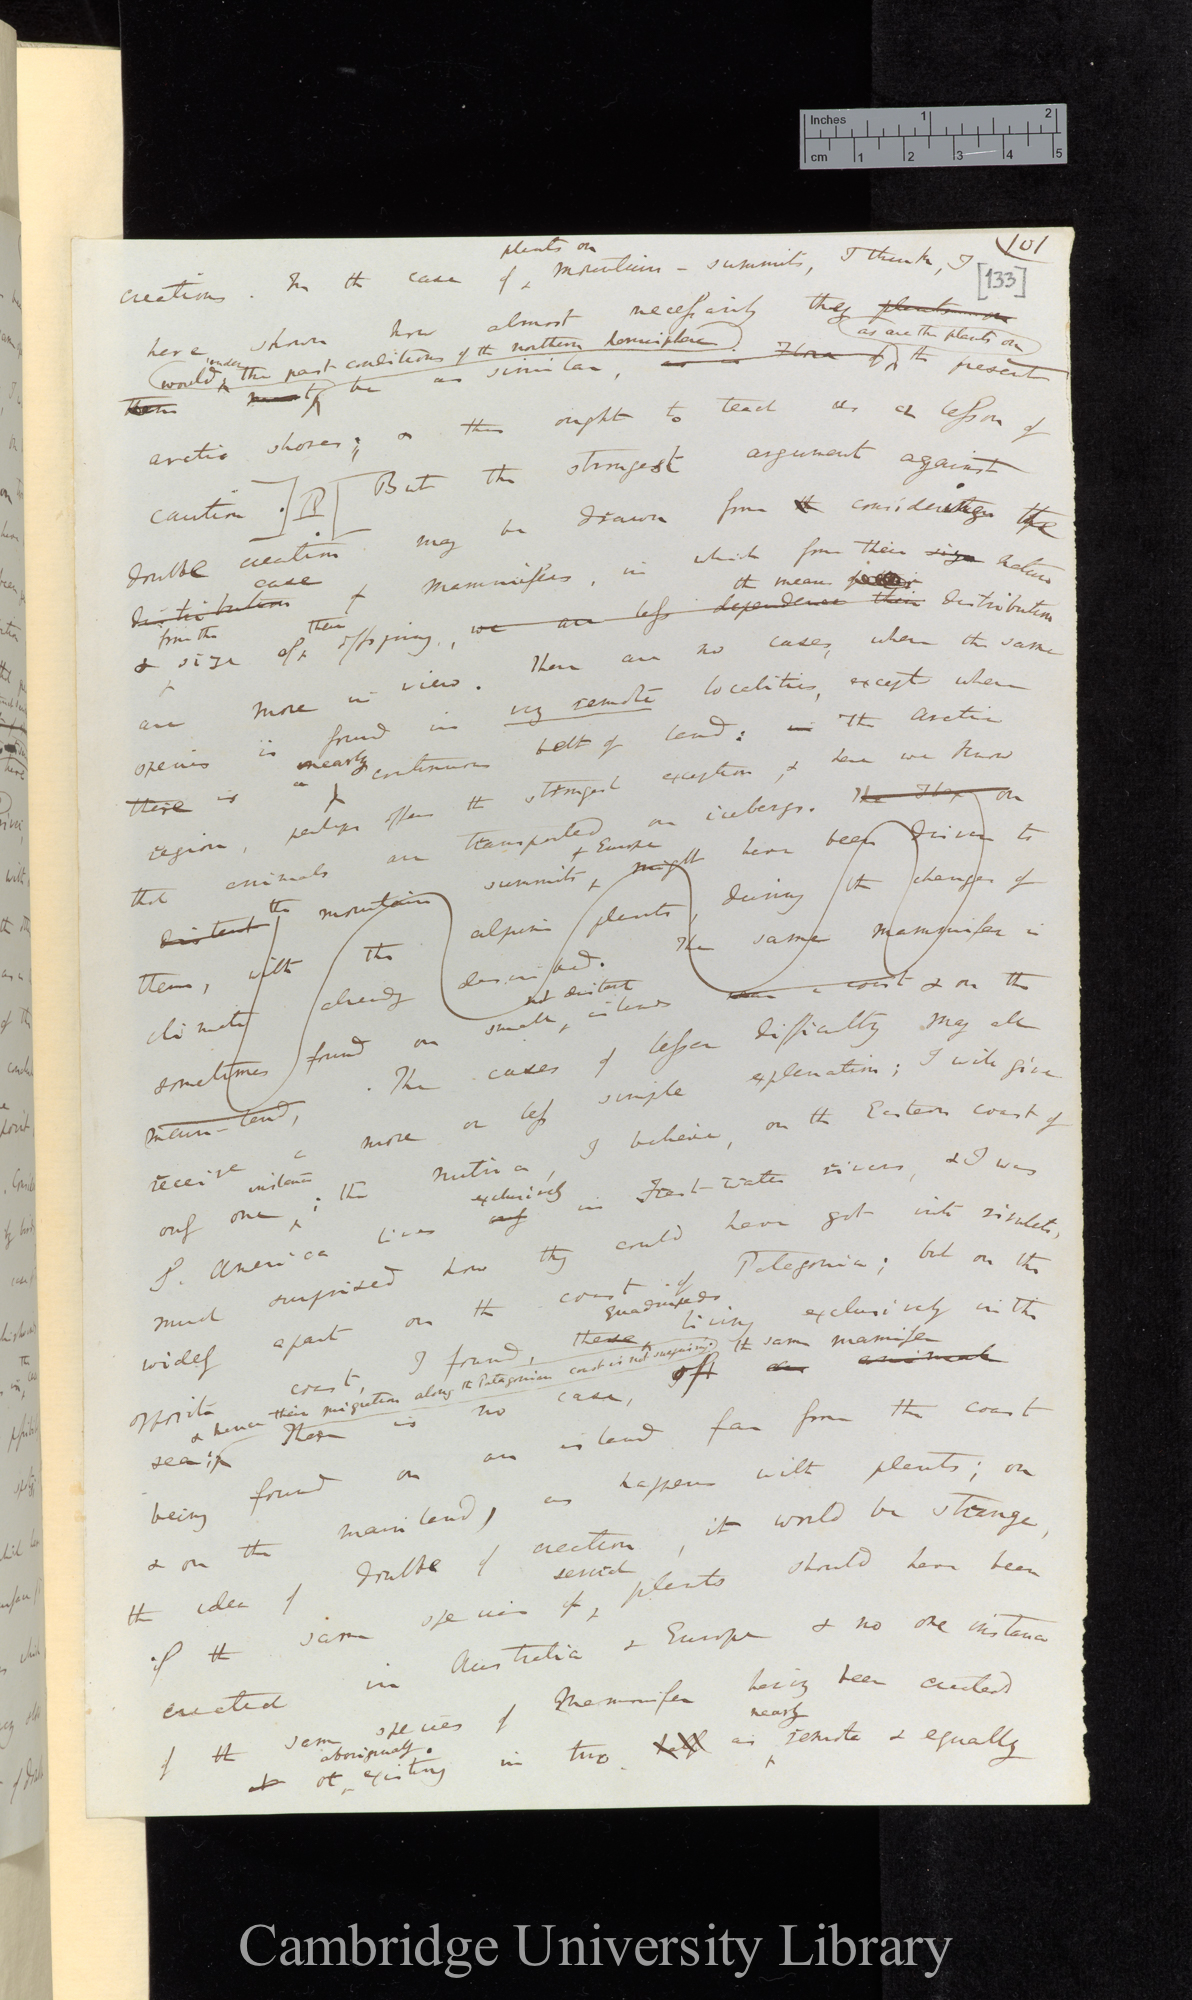 Inches 1 2
cm 1 2 3 4 5
101
[133]
plants on
creations. In the case of mountain-summits, I think, I
have shown how almost necessarily they plants on
would, under the past conditions of the northern hemisphere, as are the plants on
must be as similar, as is Flora of the present
arctic shores; & this ought to teach us a lesson of
caution.] P [But the strongest argument against
double creation may be drawn from considering the
distribution case of mammifers, in which from their size nature
from the their the means
& size of offspring, we are less dependence their distribution
are more in view. There are no cases, where the same
species is found in very remote localities, except where
there is a nearly continuous belt of land: in the arctic
region, perhaps offers the strongest exception, & here we know
that animals are transported on icebergs. The on
& Europe
distant the mountain summits, might have been driven to
them, with the alpine plants, during the changes of
climate already described. The same mammifer is
not distant
sometimes found on small islands near a coast & on the
main-land, . The cases of lesser difficulty may all
receive a more or less simple explanation; I will give
instance
only one; the nutria, I believe, on the Eastern coast of
exclusively
S. America lives only in Fresh-water rivers, & I was
much surprised how they could have got into rivulets,
widely apart on the coast of Patagonia; but on the
quadrupeds
opposite coast, I found, these living exclusively in the
& hence their migration along the Patagonian coast is not surprising.
sea; There is no case, of the same mammifer an animal
being found on an island far from the coast
& on the mainland, as happens with plants; on
the idea of double of creation, it would be strange,
several
if the same species of plants should have been
created in Australia & Europe & no one instance
of the same species of Mammifer having been created
aboriginally nearly
or existing in two as remote & equally
Cambridge University Library